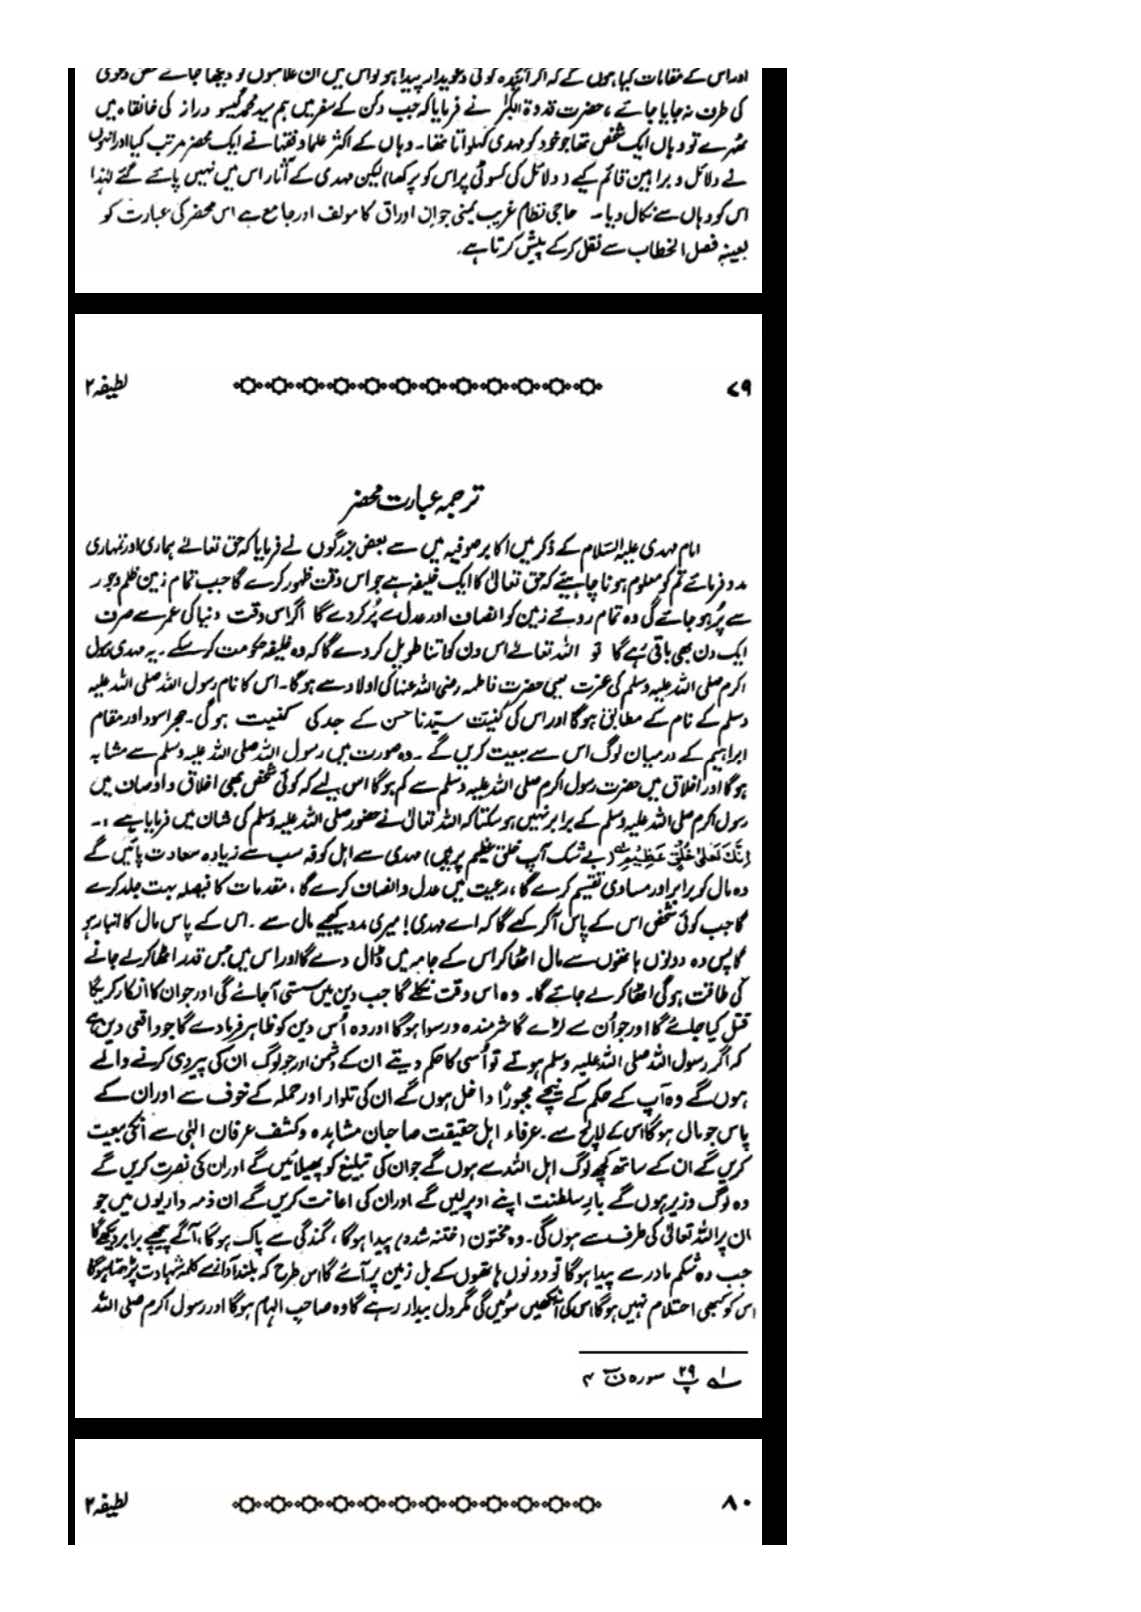 اور اس کے مقامات کیا ہوں گے کہ اگر آئندہ کوئی دعویدار پیدا ہو تو اس میں ان علامتوں کو دیکھا جائے محض دعویٰ
کی طرف نہ جایا جائے، حضرت قدوۃ الکبرٰ نے فرمایا کہ جب دکن کے سفر میں ہم سید محمد گیسو دراز کی خانقاہ میں
ٹھہرے تو وہاں ایک شخص تھا جو خود کو مہدی کہلواتا تھا۔ وہاں کے اکثر علماء و فقہا نے ایک محضر مرتب کیا اور انہوں
نے دلائل و براہین قائم کیے (دلائل کی کسوٹی پر اس کو پرکھا) لیکن مہدی کے آثار اس میں نہیں پائے گئے لہٰذا
اس کو وہاں سے نکال دیا۔ حاجی نظام غریب یمنی جو ان اوراق کا مولف اور جامع ہے اس محضر کی عبارت کو
بعینہٖ فصل الخطاب سے نقل کر کے پیش کرتا ہے۔
۷۹ لطیفہ ۲
ترجمہ عبارت محضر
امام مہدی علیہ السلام کے ذکر میں اکابر صوفیہ میں سے بعض بزرگوں نے فرمایا کہ حق تعالےٰ ہماری اور تمہاری
مدد فرمائے تم کو معلوم ہونا چاہیئے کہ حق تعالیٰ کا ایک خلیفہ ہے جو اس وقت ظہور کرے گا جب تمام زمین ظلم و جور
سے پُر ہو جائے گی وہ تمام روئے زمین کو انصاف اور عدل سے پُر کر دے گا اگر اس وقت دنیا کی عمر سے صرف
ایک دن بھی باقی رہے گا تو اللہ تعالےٰ اس دن کو اتنا طویل کر دے گا کہ وہ خلیفہ حکومت کر سکے۔ یہ مہدی رسول
اکرم صلی اللہ علیہ وسلم کی عترت یعنی حضرت فاطمہ رضی اللہ عنہا کی اولاد سے ہوگا۔ اس کا نام رسول اللہ صلی اللہ علیہ
وسلم کے نام کے مطابق ہوگا اور اس کی کنیت سیّدنا حسن کے جد کی کنیت ہو گی۔ حجر اسود اور مقام
ابراہیم کے درمیان لوگ اس سے بیعت کریں گے۔ وہ صورت میں رسول اللہ صلی اللہ علیہ وسلم سے مشابہ
ہوگا اور اخلاق میں حضرت رسول اکرم صلی اللہ علیہ وسلم سے کم ہوگا اس لیے کہ کوئی شخص بھی اخلاق و اوصاف میں
رسول اکرم صلی اللہ علیہ وسلم کے برابر نہیں ہو سکتا کہ اللہ تعالیٰ نے حضور صلی اللہ علیہ وسلم کی شان میں فرمایا ہے :۔
اِنَّكَ لَعَلٰى خُلُقٍ عَظِيْمٍ (بے شک آپ خلق عظیم پر ہیں) مہدی سے اہل کوفہ سب سے زیادہ سعادت پائیں گے
وہ مال کو برابر اور مساوی تقسیم کرے گا، رعیت میں عدل و انصاف کرے گا، مقدمات کا فیصلہ بہت جلد کرے
گا جب کوئی شخص اس کے پاس آکر کہے گا کہ اے مہدی! میری مدد کیجیے مال سے۔ اس کے پاس مال کا انبار ہو
گا پس وہ دونوں ہاتھوں سے مال اٹھا کر اس کے جامہ میں ڈال دے گا اور اس میں جس قدر اٹھا کر لے جانے
کی طاقت ہوگی اٹھا کر لے جائے گا۔ وہ اس وقت نکلے گا جب دین میں سستی آجائے گی اور جو ان کا انکار کریگا
قتل کیا جائے گا اور جو اُن سے لڑے گا شرمندہ و رسوا ہوگا اور وہ اُس دین کو ظاہر فرمادے گا جو واقعی دین ہے
کہ اگر رسول اللہ صلی اللہ علیہ وسلم ہوتے تو اُسی کا حکم دیتے ان کے دشمن اور جو لوگ ان کی پیروی کرنے والے
ہوں گے وہ آپ کے حکم کے نیچے مجبوراً داخل ہوں گے ان کی تلوار اور حملہ کے خوف سے اور ان کے
پاس جو مال ہوگا اس کے لالچ سے۔ عرفاء اہل حقیقت صاحبان مشاہدہ و کشف عرفان الہٰی سے انکی بیعت
کریں گے ان کے ساتھ کچھ لوگ اہل اللہ سے ہوں گے جو ان کی تبلیغ کو پھیلائیں گے اور ان کی نصرت کریں گے
وہ لوگ وزیر ہوں گے بارِ سلطنت اپنے اوپر لیں گے اور ان کی اعانت کریں گے ان ذمہ داریوں میں جو
ان پر اللہ تعالیٰ کی طرف سے ہوں گی۔ وہ مختون (ختنہ شدہ) پیدا ہوگا، گندگی سے پاک ہوگا، آگے پیچھے برابر دیکھے گا
جب وہ شکم مادر سے پیدا ہوگا تو دونوں ہاتھوں کے بل زمین پر آئے گا اس طرح کہ بلند آواز سے کلمہ شہادت پڑھتا ہوگا
اس کو کبھی احتلام نہیں ہوگا اس کی آنکھیں سوئیں گی مگر دل بیدار رہے گا وہ صاحب الہام ہوگا اور رسول اکرم صلی اللہ
لے پ ۲۹ سورہ ن ۴
۸۰ لطیفہ ۲